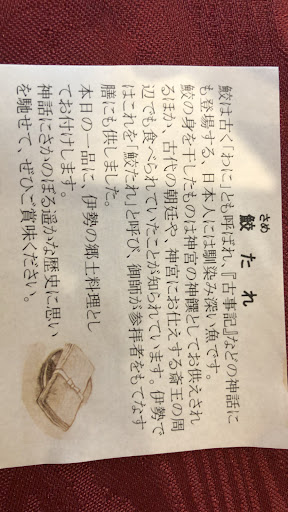 さめ
鮫たれ
鮫は古く「わに」とも呼ばれ、『古事記』などの神話に
も登場する、日本人には馴染み深い魚です。
鮫の身を干したものは神宮の神饌としてお供えされ
るほか、古代の朝廷や、神宮にお仕えする斎王の周
辺でも食べられていたことが知られています。伊勢で
はこれを「鮫たれ」と呼び、御師が参拝者をもてなす
膳にも供しました。
本日の一品に、伊勢の郷土料理とし
てお付けします。
神話にさかのぼる遥かな歴史に思い
を馳せて、ぜひご賞味ください。